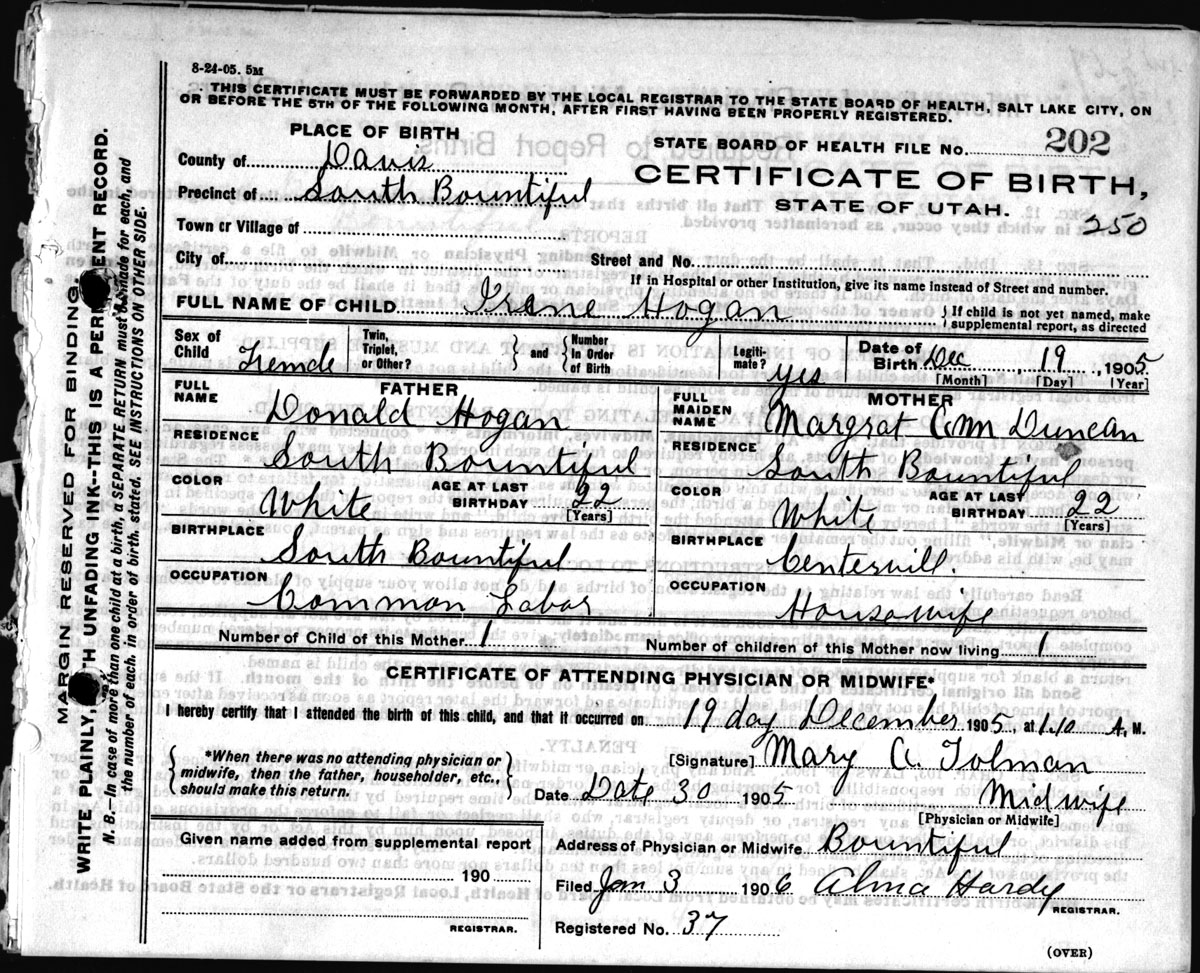 8-24-05. 5M
THIS CERTIFICATE MUST BE FORWARDED BY THE LOCAL REGISTRAR TO THE STATE BOARD OF HEALTH, SALT LAKE CITY, ON
OR BEFORE THE 5TH OF THE FOLLOWING MONTH, AFTER FIRST HAVING BEEN PROPERLY REGISTERED.
PLACE OF BIRTH
STATE BOARD OF HEALTH FILE No. 202
County of Davis
CERTIFICATE OF BIRTH,
Precinct of South Bountiful
STATE OF UTAH.
250
Town or Village of
City of Street and No.
If in Hospital or other Institution, give its name instead of Street and number.
FULL NAME OF CHILD Irene Hogan { If child is not yet named, make
supplemental report, as directed
Sex of Child Female
Twin, Triplet, or Other? } and { Number In Order of Birth
Legiti-mate? yes
Date of Birth Dec 19, 1905
[Month] [Day] [Year]
FATHER
FULL NAME Donald Hogan
RESIDENCE South Bountiful
COLOR White AGE AT LAST BIRTHDAY 22
[Years]
BIRTHPLACE South Bountiful
OCCUPATION Common Labor
MOTHER
FULL MAIDEN NAME Margrat Ann Duncan
RESIDENCE South Bountiful
COLOR White AGE AT LAST BIRTHDAY 22
[Years]
BIRTHPLACE Centervill
OCCUPATION Housewife
Number of Child of this Mother 1 Number of children of this Mother now living 1
CERTIFICATE OF ATTENDING PHYSICIAN OR MIDWIFE*
I hereby certify that I attended the birth of this child, and that it occurred on 19 day December 1905, at 1.10 A. M.
{ *When there was no attending physician or
midwife, then the father, householder, etc.,
should make this return. }
[Signature] Mary A. Tolman
Date Date 30 1905 Midwife
[Physician or Midwife]
Given name added from supplemental report
190
REGISTRAR.
Address of Physician or Midwife Bountiful
Filed Jan 3 1906 Alma Hardy
REGISTRAR.
Registered No. 37
(OVER)
MARGIN RESERVED FOR BINDING.
WRITE PLAINLY, WITH UNFADING INK--THIS IS A PERMANENT RECORD.
N. B.--In case of more than one child at a birth, a SEPARATE RETURN must be made for each, and
the number of each, in order of birth, stated. SEE INSTRUCTIONS ON OTHER SIDE.